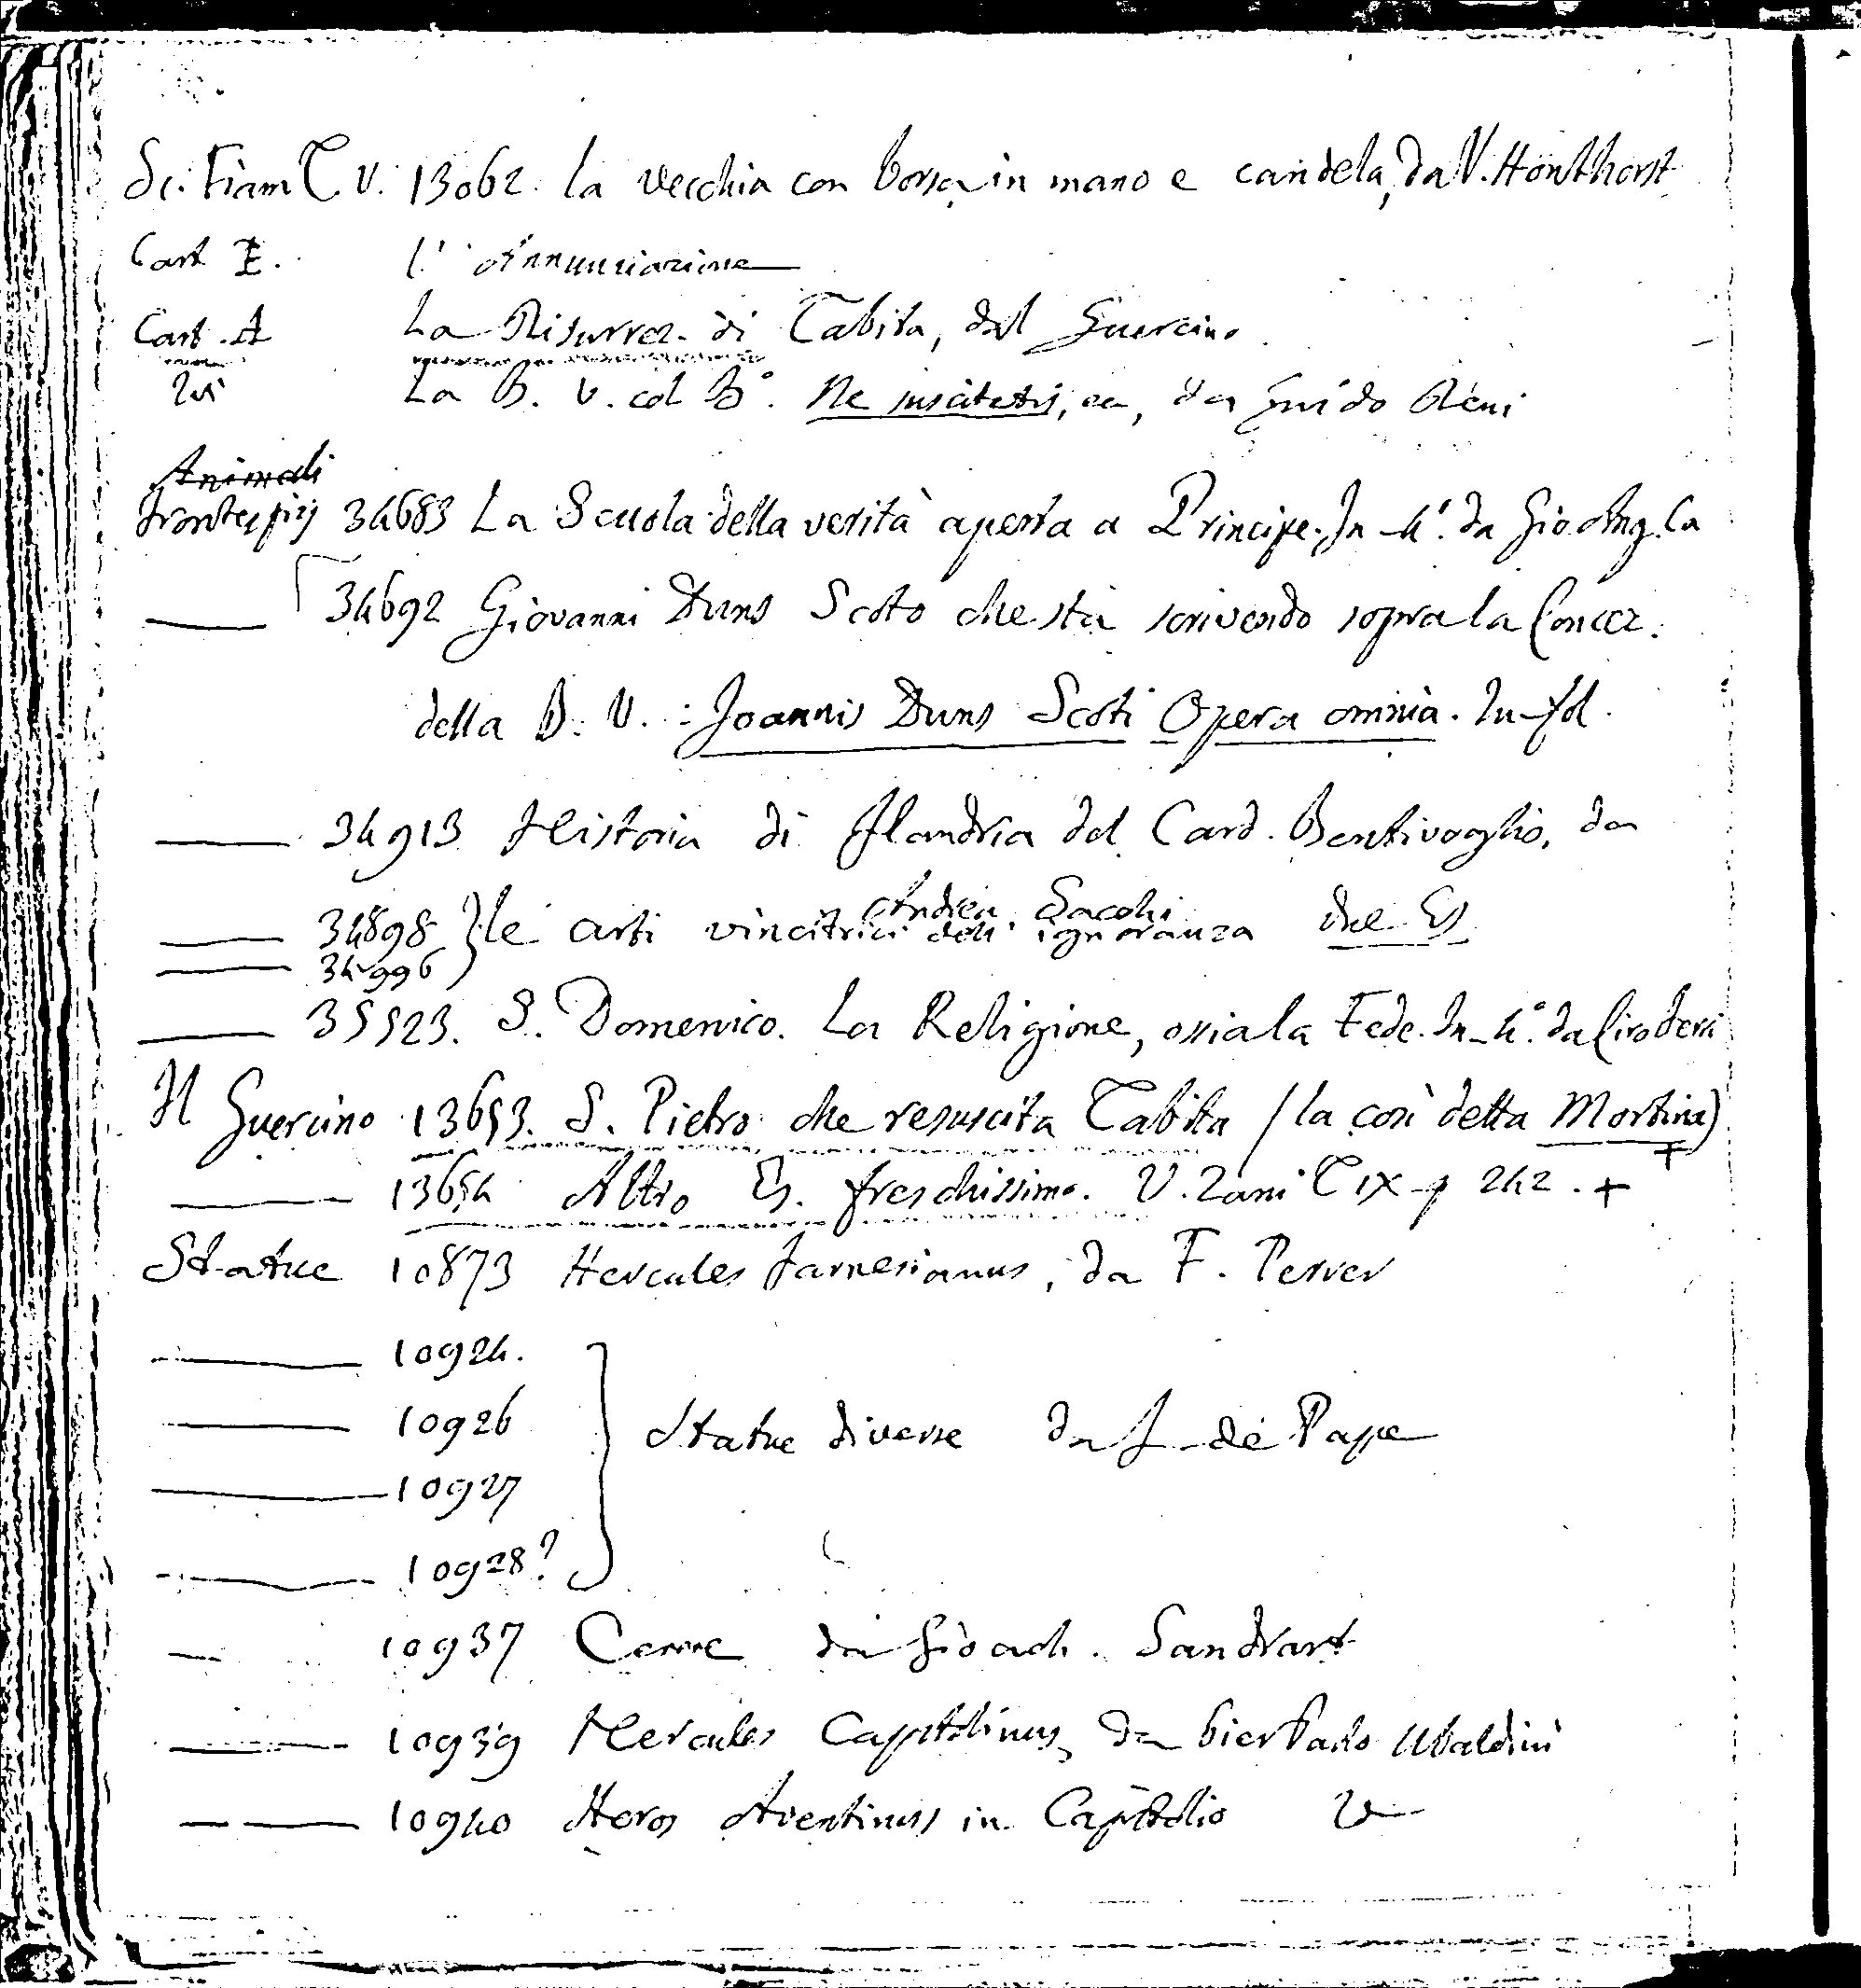 Sc. Fiam T. V. 13062. La Vecchia con borsa in mano e candela, da V. Honthorst
Cart E. L'Annunciazione
Cart. A La Risurrez. di Tabita, dal Guercino
Ivi La B. V. col B°. Ne suscitetis, ec, da Guido Reni
Animali
Frontespizj 34683 La Scuola della verità aperta a Principe. In-4°. da Gio Ang. Ca
34692 Giovanni Duns Scoto che sta scrivendo sopra la Concez.
della B. V. : Joannis Duns Scoti Opera omnia. In-fol.
34913 Historia di Flandria del Card. Bentivoglio, da
Andrea Sacchi
34898 le arti vincitrici dell' ignoranza due Es
34996
35523. S. Domenico. La Religione, ossia la Fede. In-4°. da Ciro Ferri
Il Guercino 13653. S. Pietro che resuscita Tabita (la così detta Mortina)
13654 Altro Es. freschissimo. V. Zani T IX p 242. +
Statue 10873 Hercules Farnesianus, da F. Perier
10924.
10926
Statue diverse da J. de Pape
10927
10928?
10937 da Gioach. Sandrart
10939 Hercules Capitolinus, da Pier Paolo Ubaldini
10940 Heros Aventinus in Capitolio